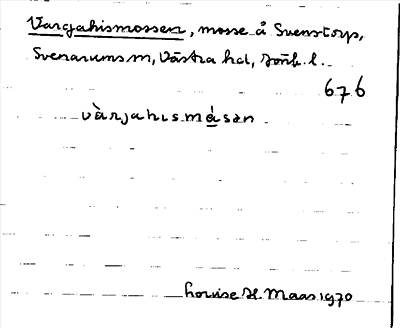 Vargahismossen, mosse å Svenstorp,
Svenarums sn, Västra hd, Jönk. l.
676
vàrjahismásan
Louise H. Maas 1970